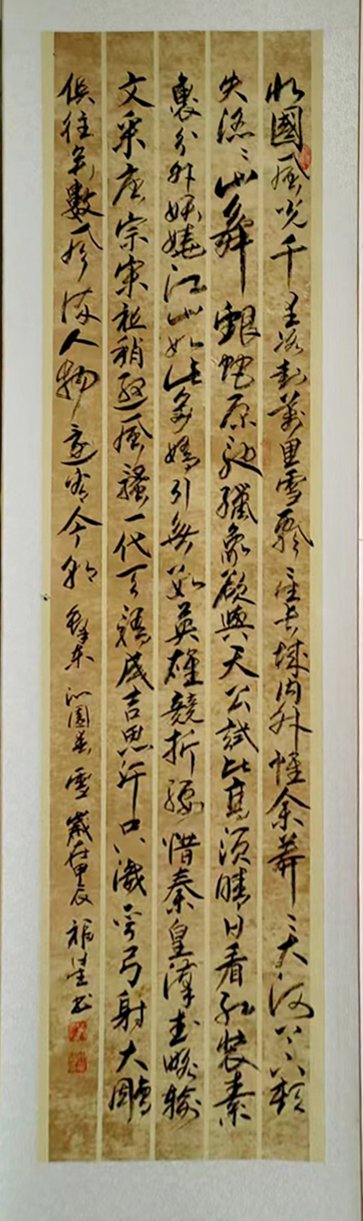 北國風光千里冰封萬里雪飄望長城内外惟余莽〻大河上下頓
失滔〻山舞銀蛇原馳蠟象欲與天公試比高須晴日看紅裝素
裹分外妖嬈江山如此多嬌引無數英雄競折腰惜秦皇漢武略輸
文采唐宗宋祖稍遜風騷一代天驕成吉思汗只識彎弓射大鵰
俱往矣數風流人物還看今朝 澤東 沁園春 雪 歲在甲辰 書